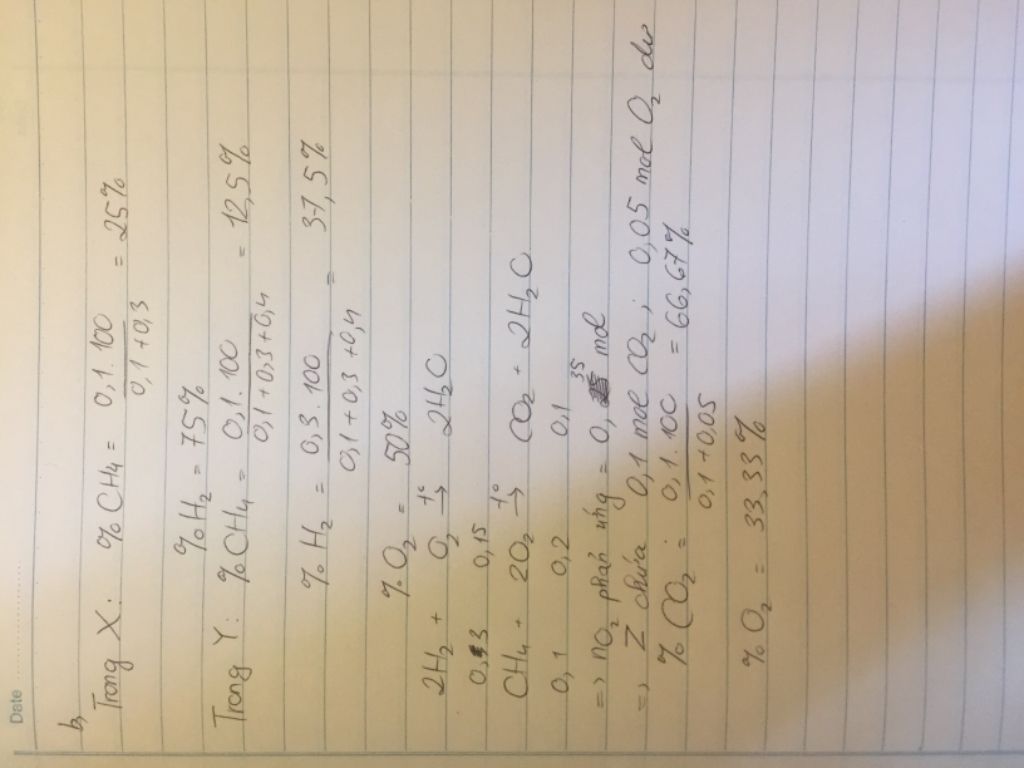 Date
b,
Trong X: % CH4 = 0,1 . 100 / 0,1 + 0,3 = 25%
% H2 = 75%
Trong Y: % CH4 = 0,1 . 100 / 0,1 + 0,3 + 0,4 = 12,5%
% H2 = 0,3 . 100 / 0,1 + 0,3 + 0,4 = 37,5%
% O2 = 50%
2H2 + O2 →t° 2H2O
0,3 0,15
CH4 + 2O2 →t° CO2 + 2H2O
0,1 0,2 0,1
=> nO2 phản ứng = 0,35 mol
=> Z chứa 0,1 mol CO2 ; 0,05 mol O2 dư
% CO2 = 0,1 . 100 / 0,1 + 0,05 = 66,67%
% O2 = 33,33%